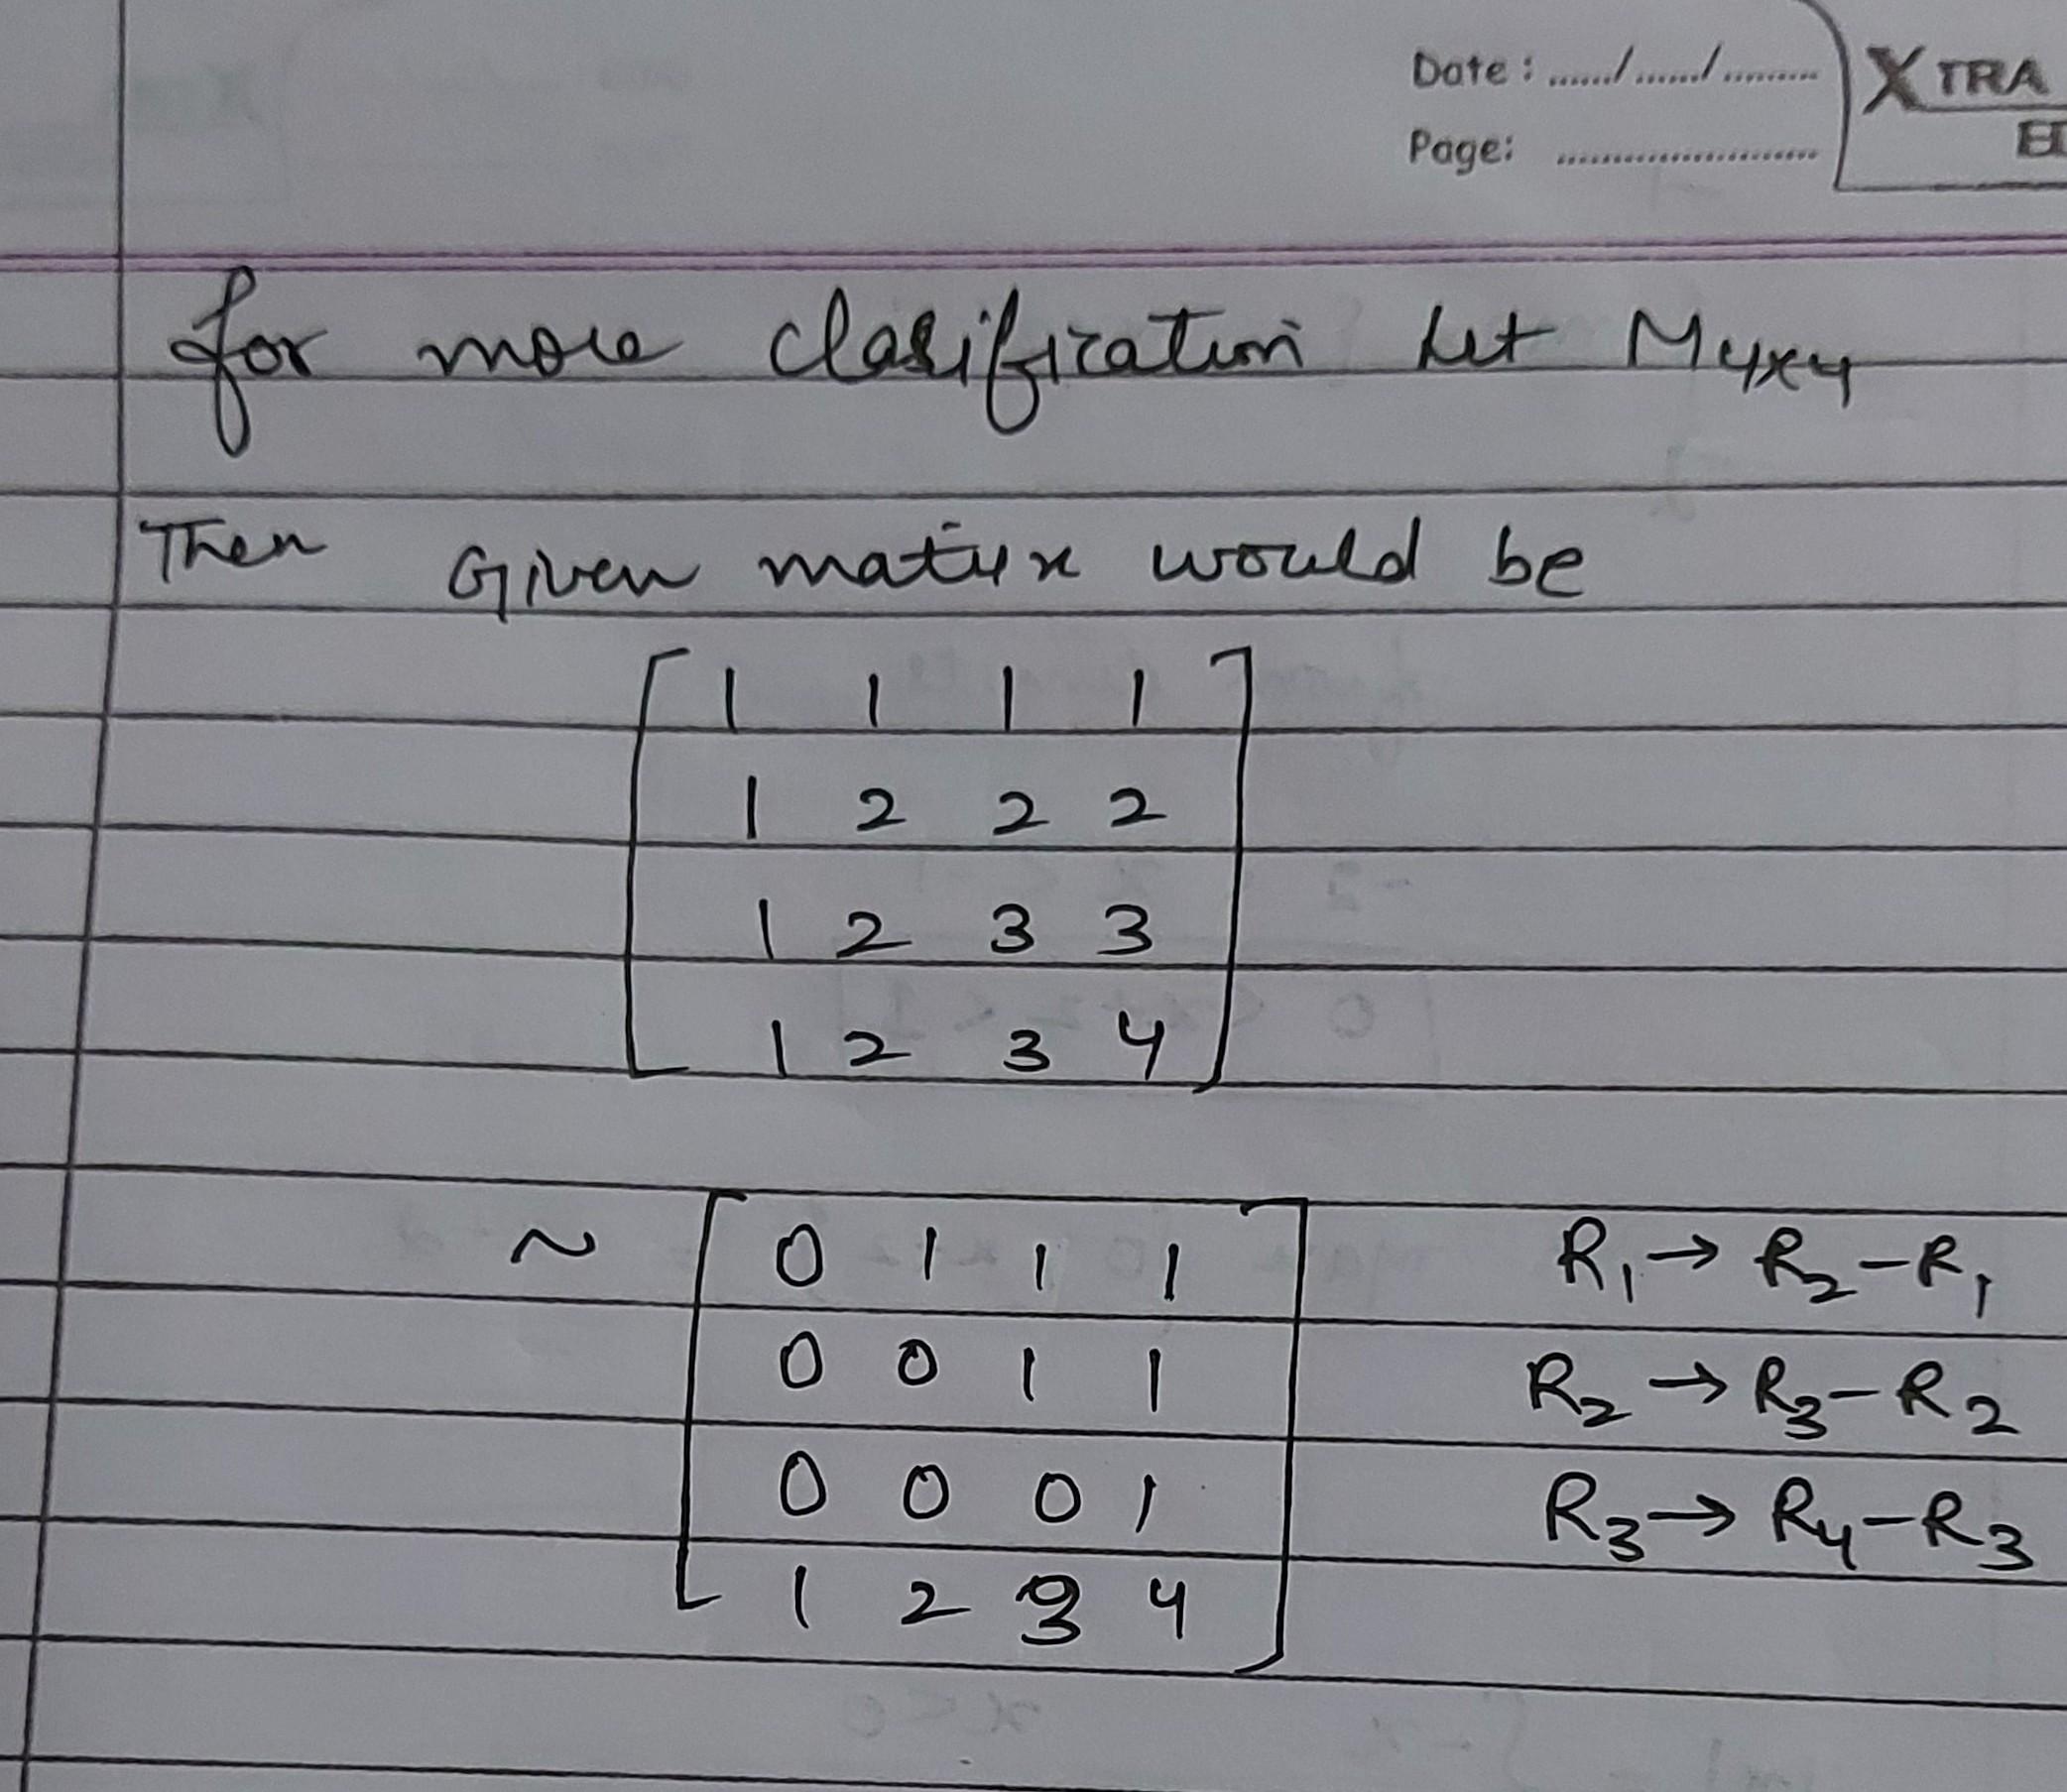 Date : ....../....../.........
Page: ........................
XTRA
for more clarification Let M4x4
Then Given matrix would be
1 1 1 1
1 2 2 2
1 2 3 3
1 2 3 4
~ 0 1 1 1 R1 → R2 - R1
0 0 1 1 R2 → R3 - R2
0 0 0 1 R3 → R4 - R3
1 2 3 4